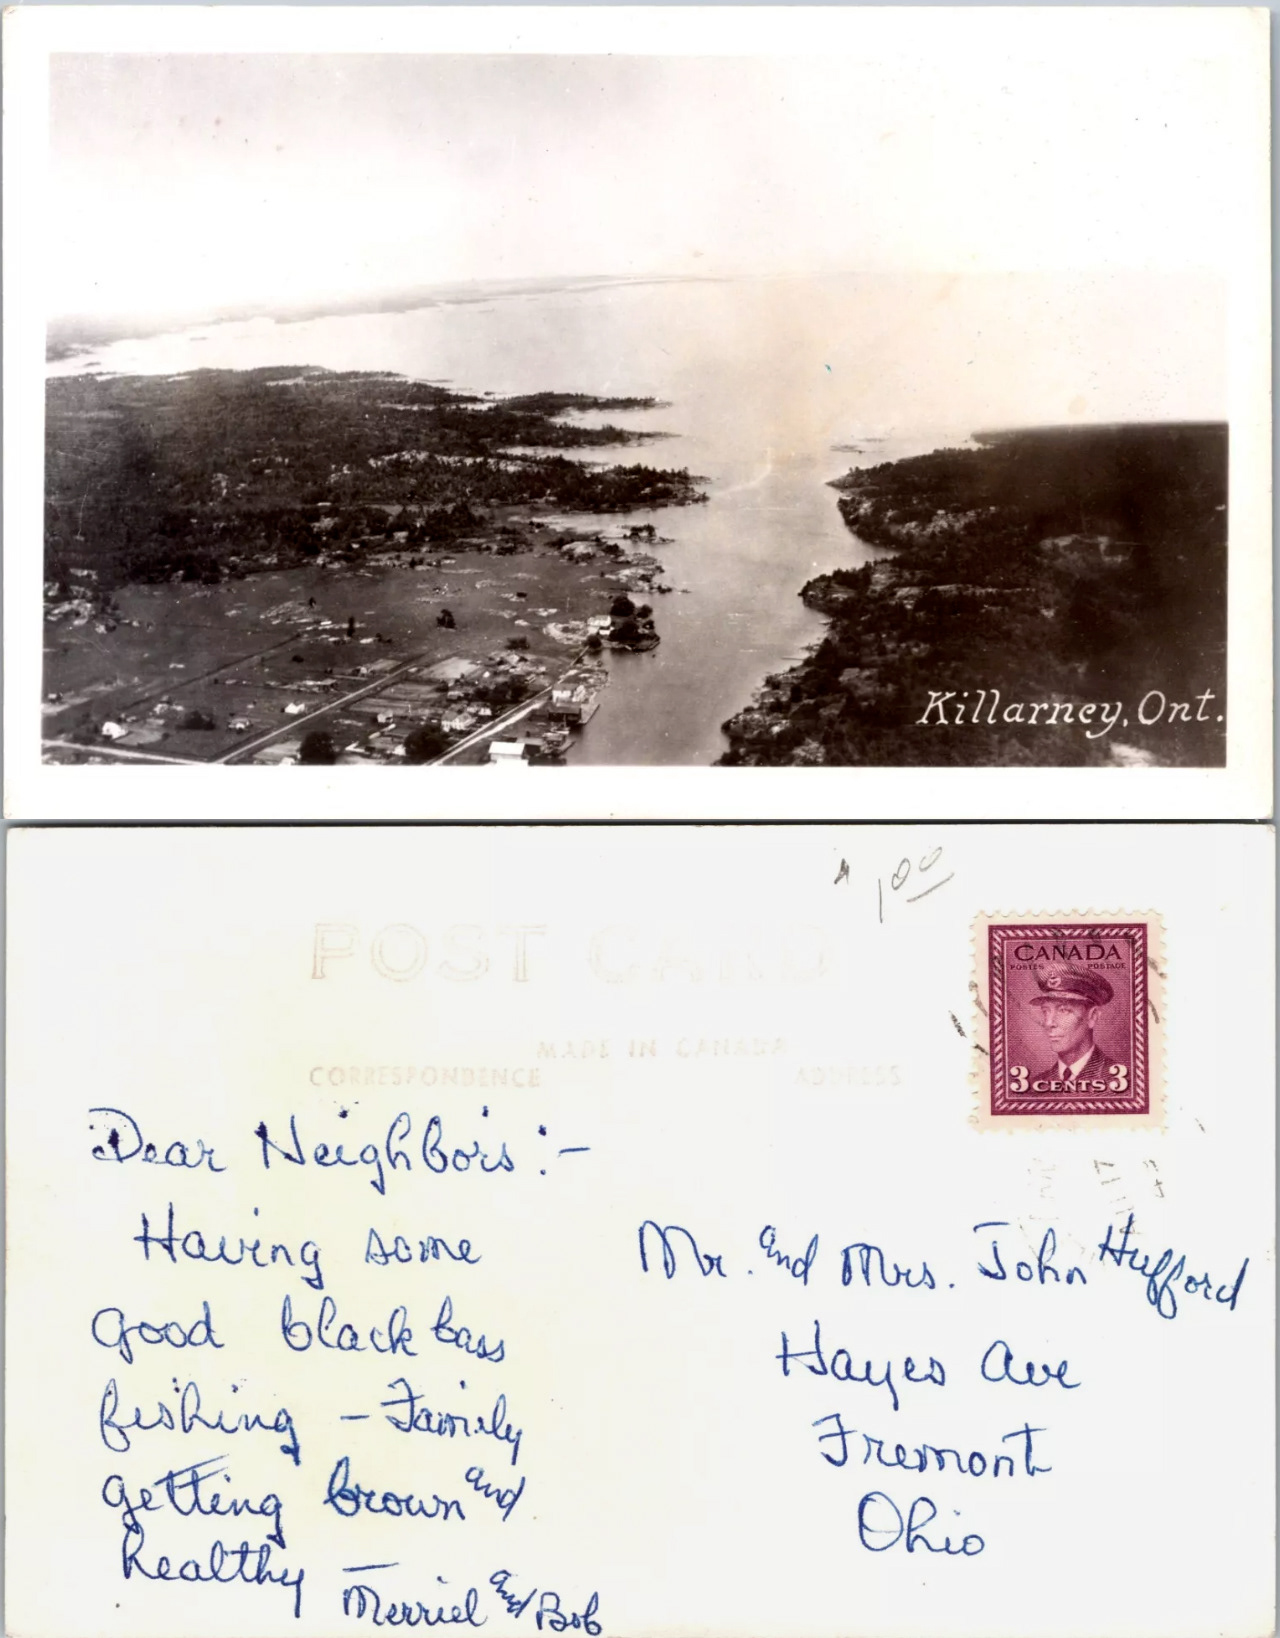 Killarney, Ont.
1.00
POST CARD
MADE IN CANADA
CORRESPONDENCE ADDRESS
CANADA
POSTES POSTAGE
3 CENTS 3
Dear Neighbors:-
Having some
good black bass
fishing - Family
getting brown and
healthy -
Merriel and Bob
Mr. and Mrs. John Hufford
Hayes Ave
Fremont
Ohio